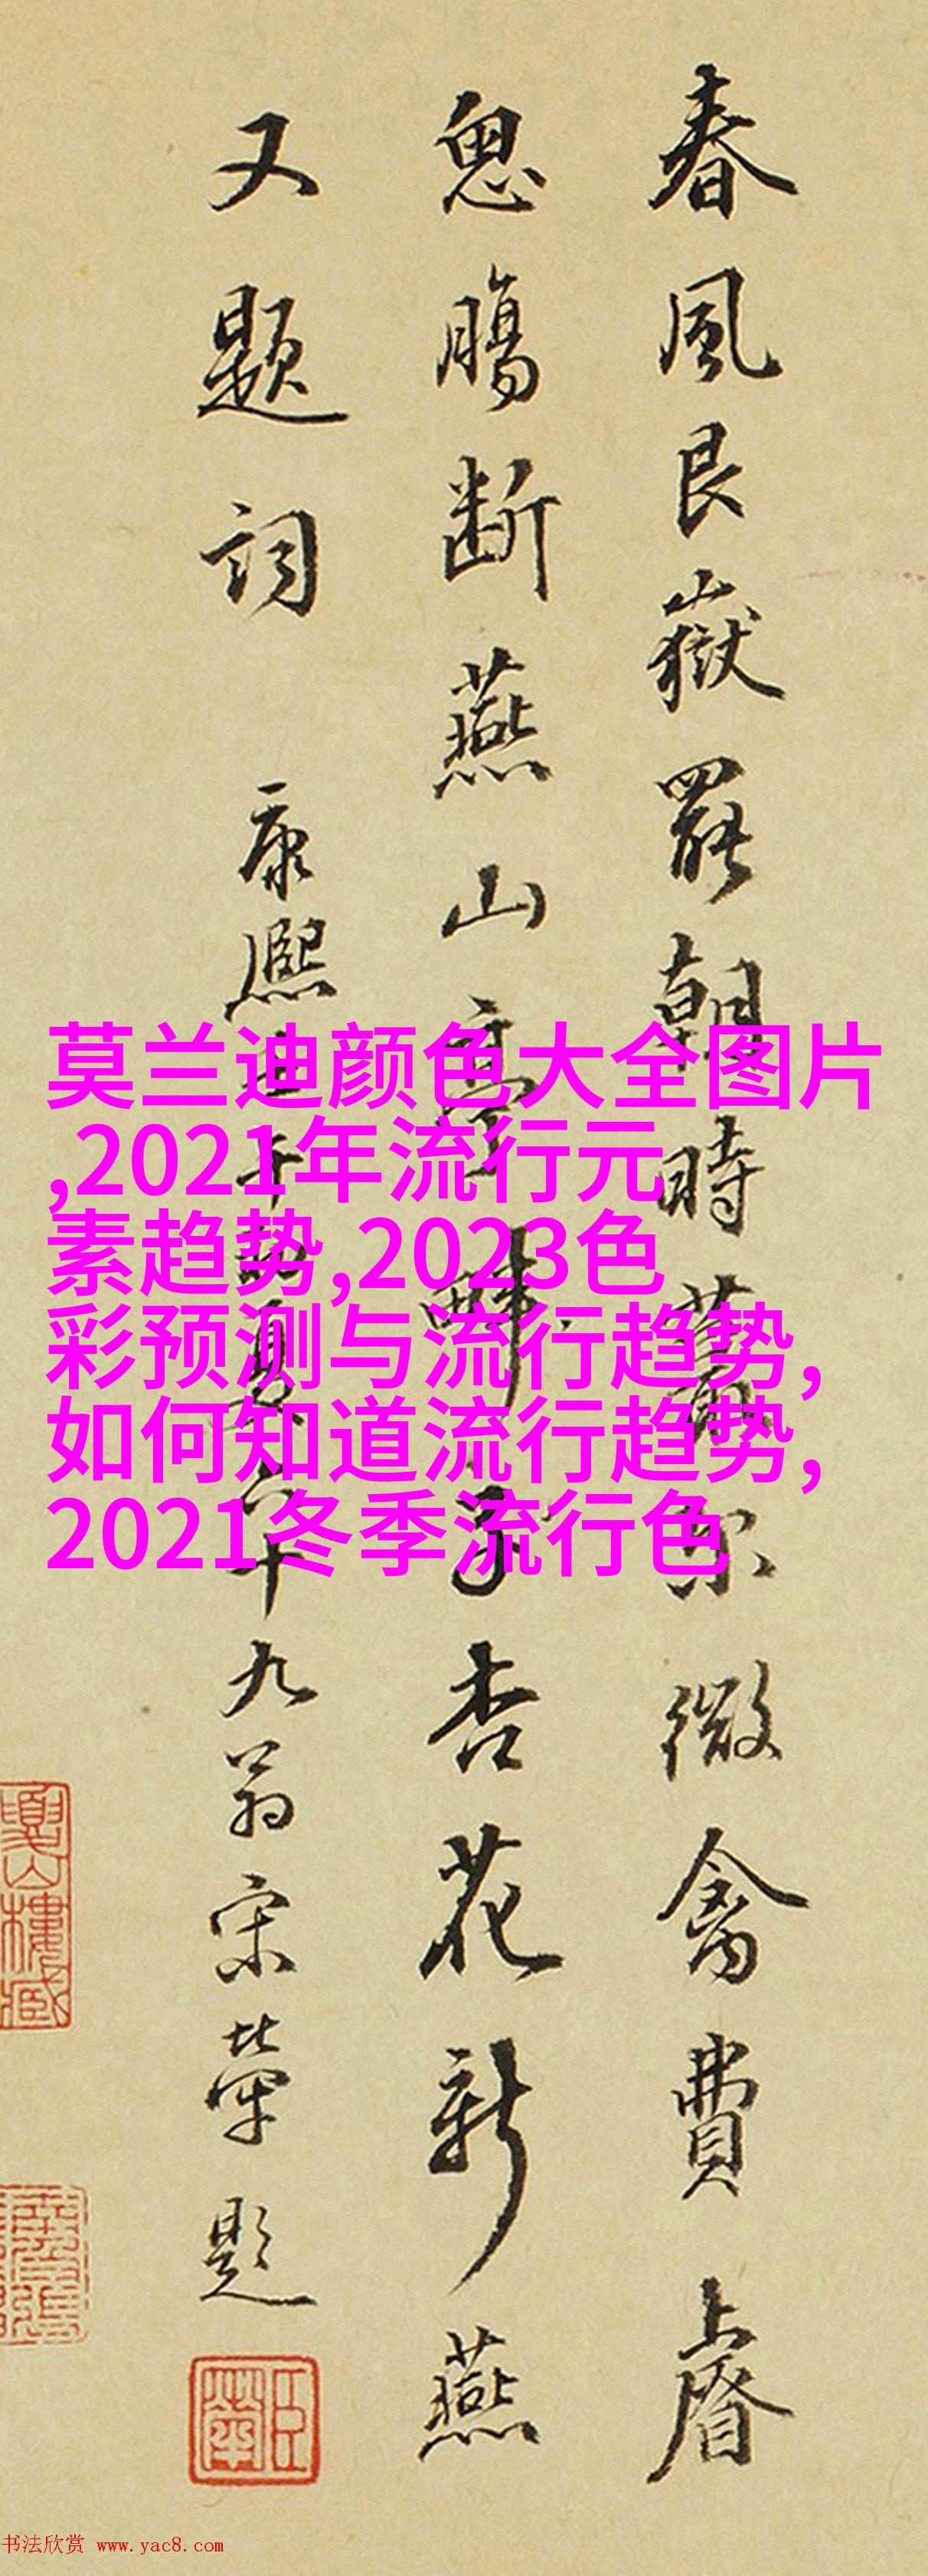 春風艮嶽罷朝時蕞尔微禽費睿
思腸断燕山亭畔杏花新燕
又題詞 康熙午夏六十九翁宋犖題
莫兰迪颜色大全图片
,2021年流行元
素趋势,2023色
彩预测与流行趋势,
如何知道流行趋势,
2021冬季流行色
臣犖
书法欣赏 www.yac8.com